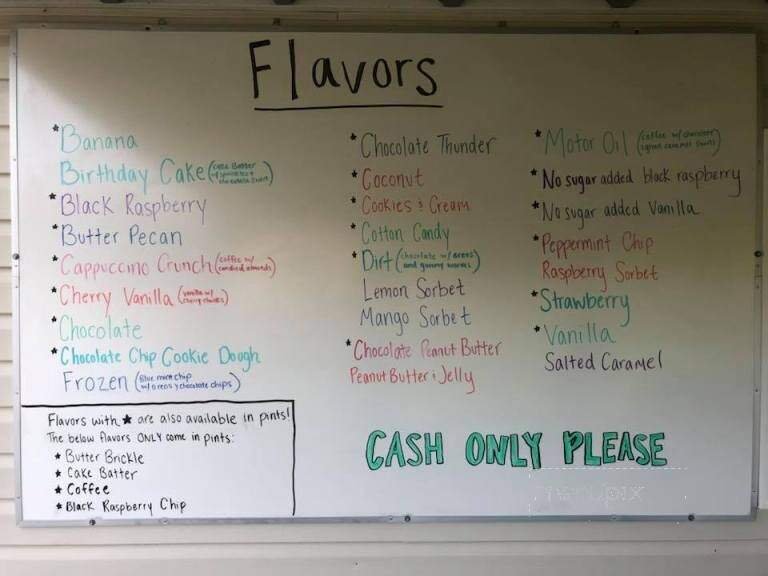 Flavors
*Banana
Birthday Cake (cake batter w/ sprinkles + chocolate swirl)
*Black Raspberry
*Butter Pecan
*Cappuccino Crunch (coffee w/ candied almonds)
*Cherry Vanilla (vanilla w/ cherry chunks)
*Chocolate
*Chocolate Chip Cookie Dough
Frozen (Blue mint chip w/ oreos y chocolate chips)
*Chocolate Thunder
*Coconut
*Cookies & Cream
*Cotton Candy
*Dirt (chocolate w/ oreos and gummy worms)
Lemon Sorbet
Mango Sorbet
*Chocolate Peanut Butter
Peanut Butter & Jelly
*Motor Oil (coffee w/ chocolate caramel swirls)
*No sugar added black raspberry
*No sugar added Vanilla
*Peppermint Chip
Raspberry Sorbet
*Strawberry
*Vanilla
Salted Caramel
Flavors with ★ are also available in pints!
The below flavors ONLY come in pints:
★ Butter Brickle
★ Cake Batter
★ Coffee
★ Black Raspberry Chip
CASH ONLY PLEASE